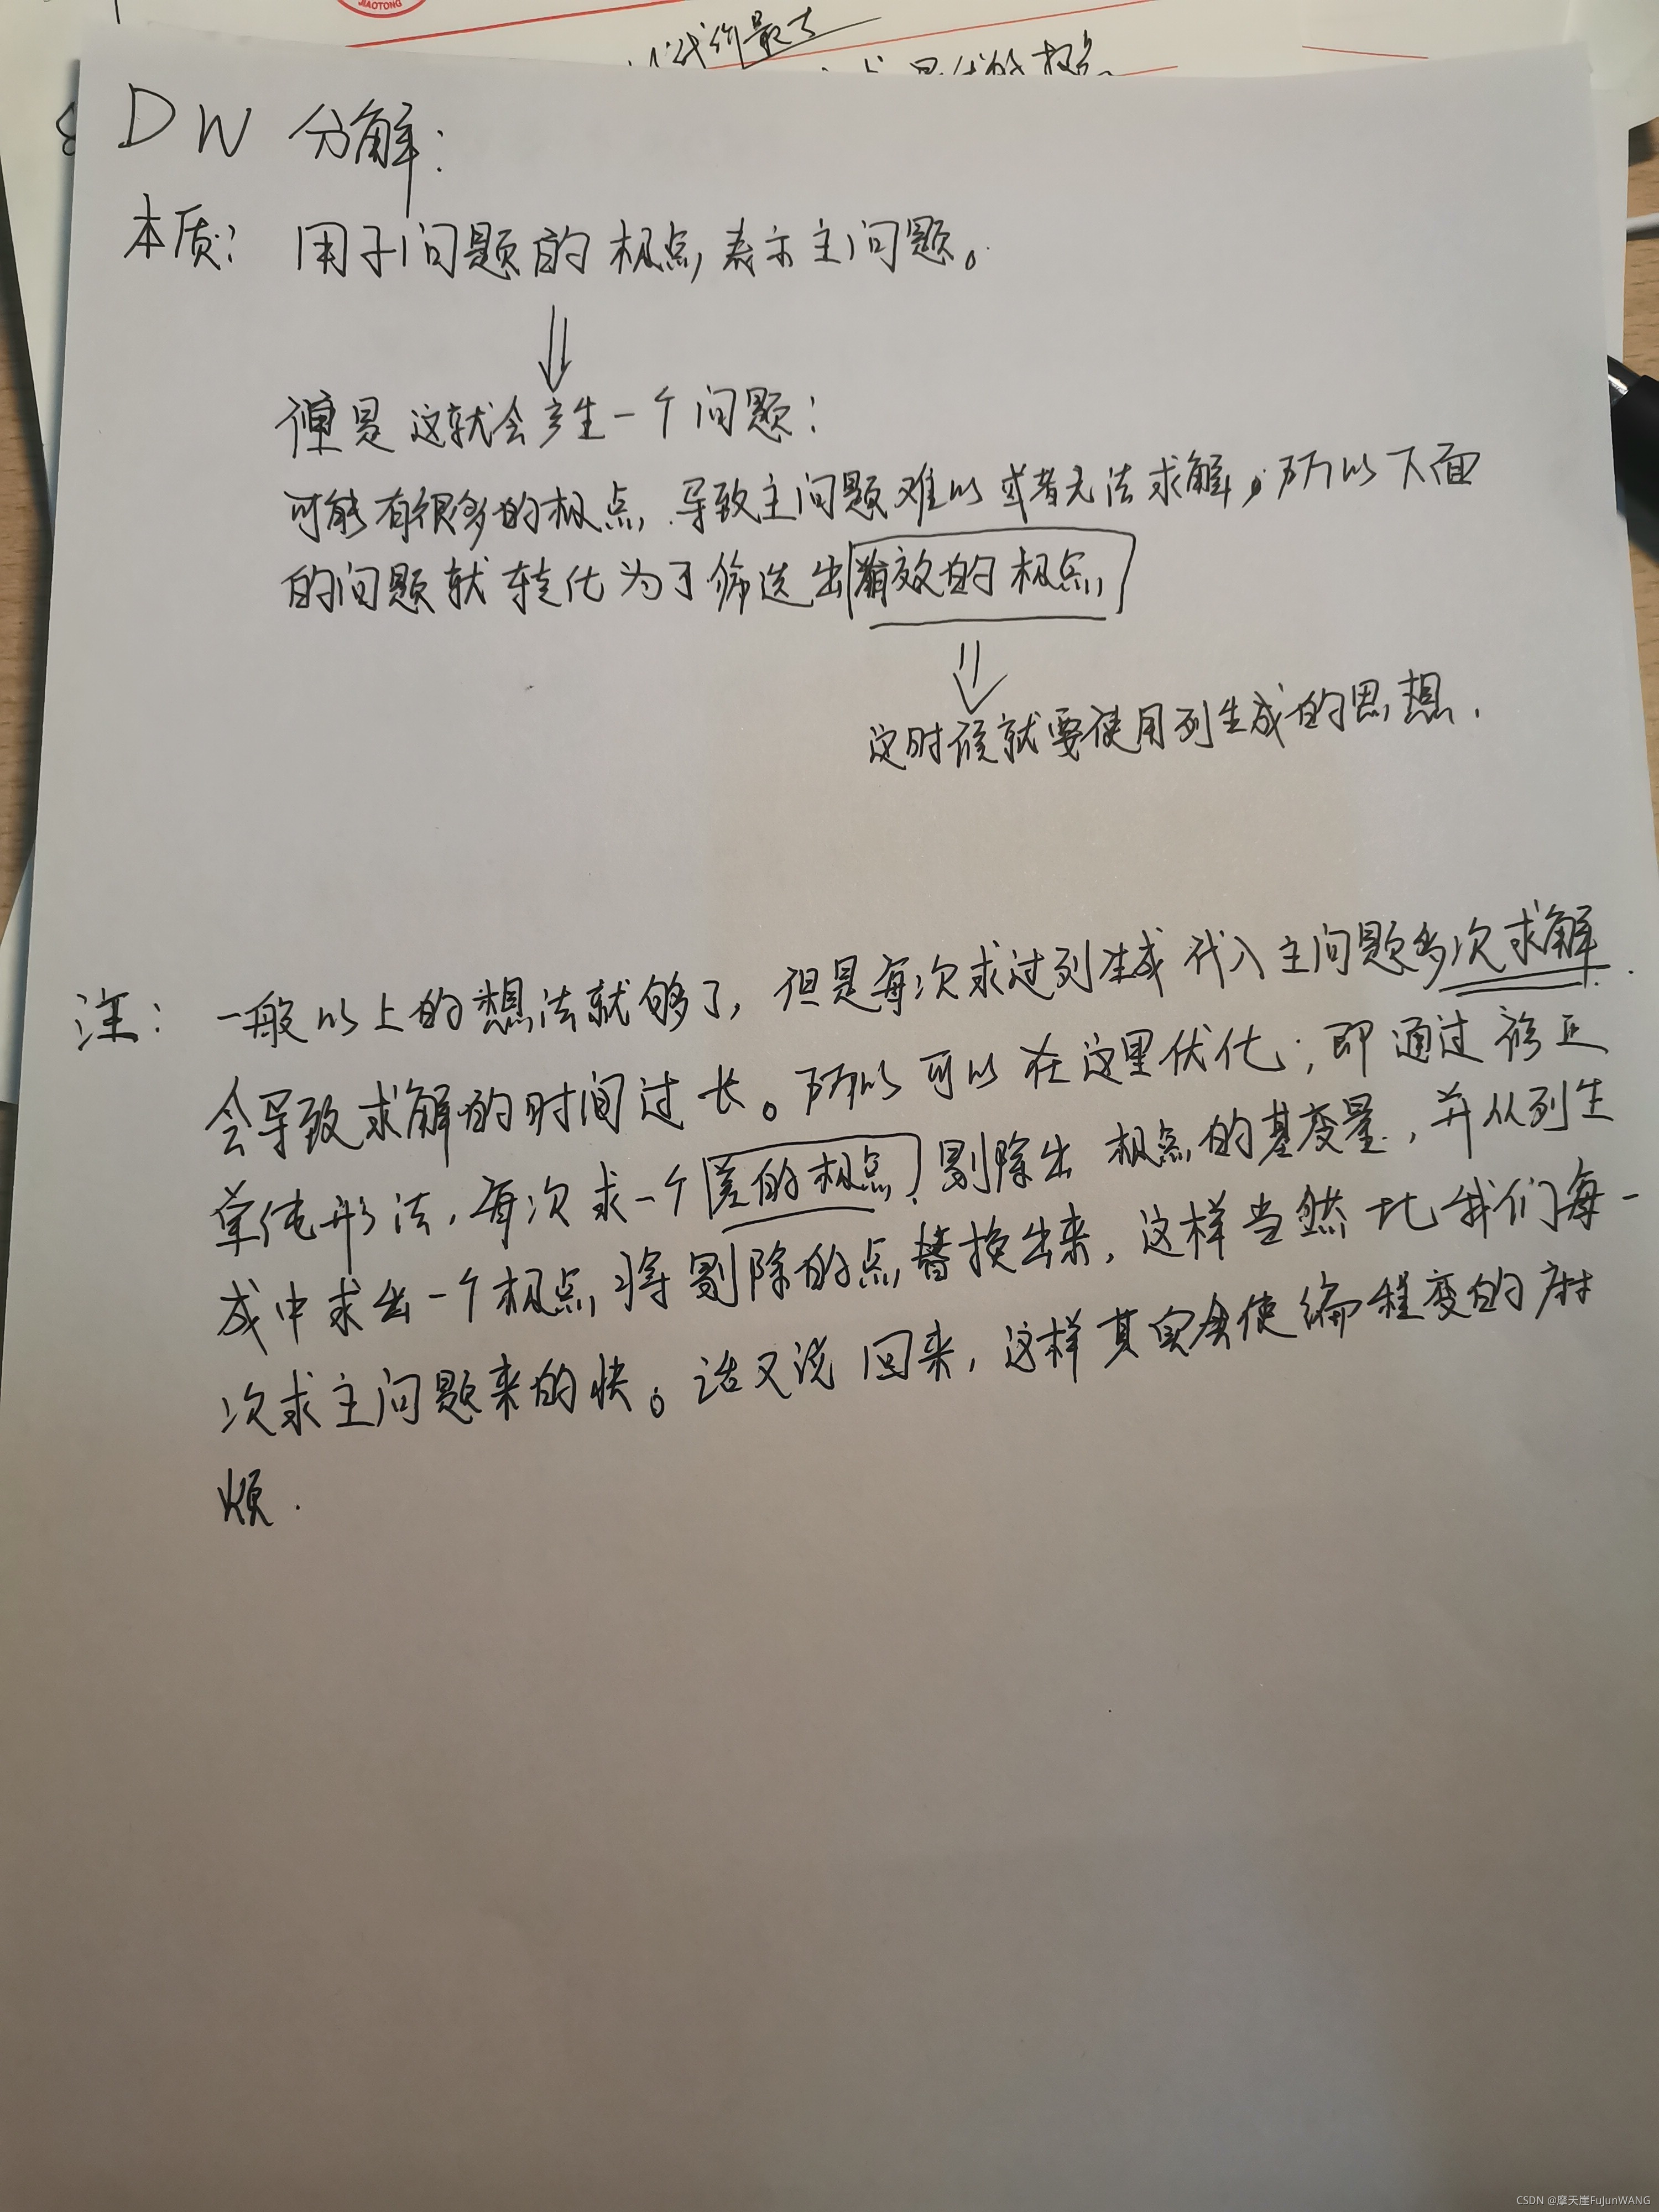 JIAOTONG
代价最大
DW 分解:
本质: 用子问题的极点表示主问题。
但是这就会产生一个问题:
可能有很多的极点,导致主问题难以或者无法求解,所以下面
的问题就转化为了筛选出有效的极点
这时候就要使用列生成的思想.
注: 一般以上的想法就够了,但是每次求过列生成代入主问题多次求解.
会导致求解的时间过长。所以可以在这里优化;即通过修正
单纯形法,每次求一个差的极点,剔除出极点的基变量,并从列生
成中求出一个极点,将剔除的点替换出来,这样当然比我们每一
次求主问题来的快。话又说回来,这样其实会使编程变的麻
烦.
CSDN @摩天崖FuJunWANG